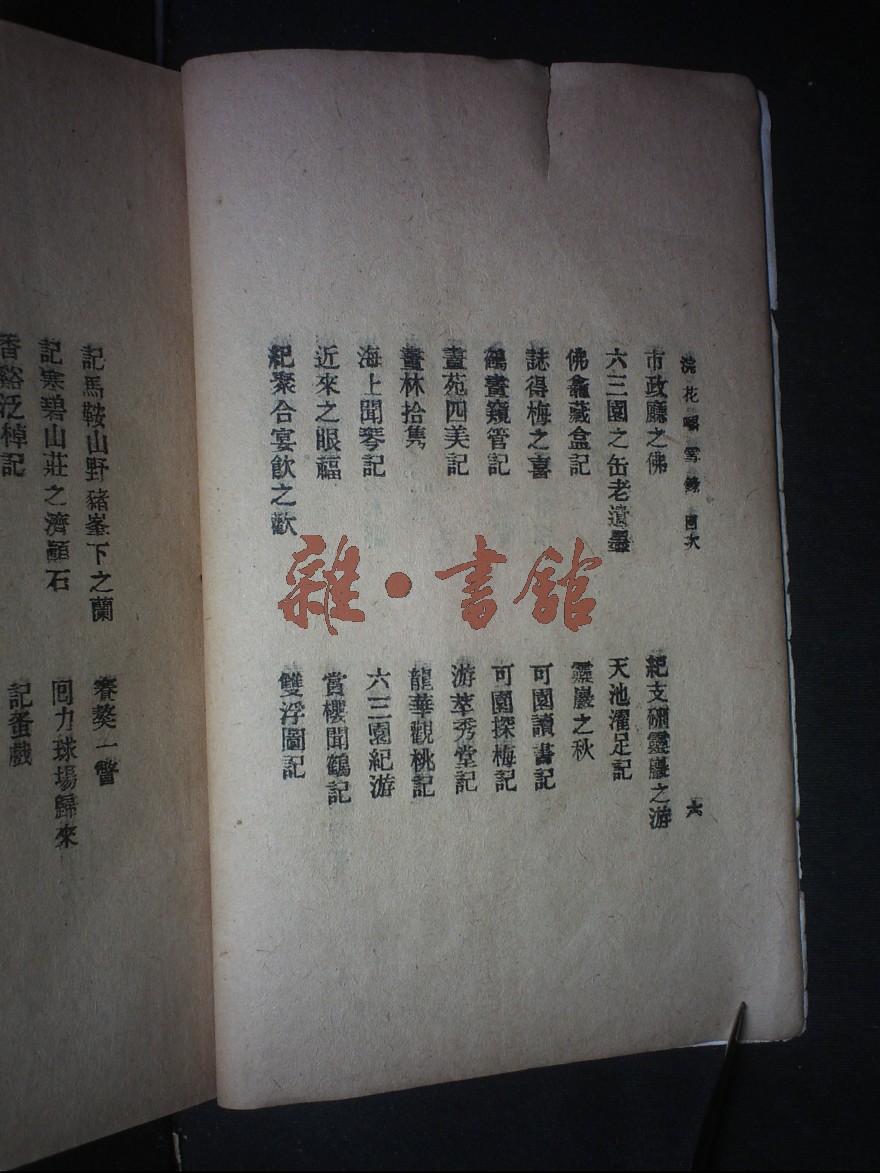 浣花嚼雪錄 目次
六
市政廳之佛
六三園之缶老遺墨
佛龕藏盒記
誌得梅之喜
鶴畫窺管記
畫苑四美記
畫林拾雋
海上聞琴記
近來之眼福
紀聚合宴飲之歡
紀支硎靈巖之游
天池濯足記
靈巖之秋
可園讀書記
可園探梅記
游萃秀堂記
龍華觀桃記
六三園紀游
賞櫻聞鶴記
雙浮圖記
記馬鞍山野豬峯下之蘭
記寒碧山莊之濟顚石
香谿泛棹記
賽獒一瞥
回力球場歸來
記蚤戲
雜·書館